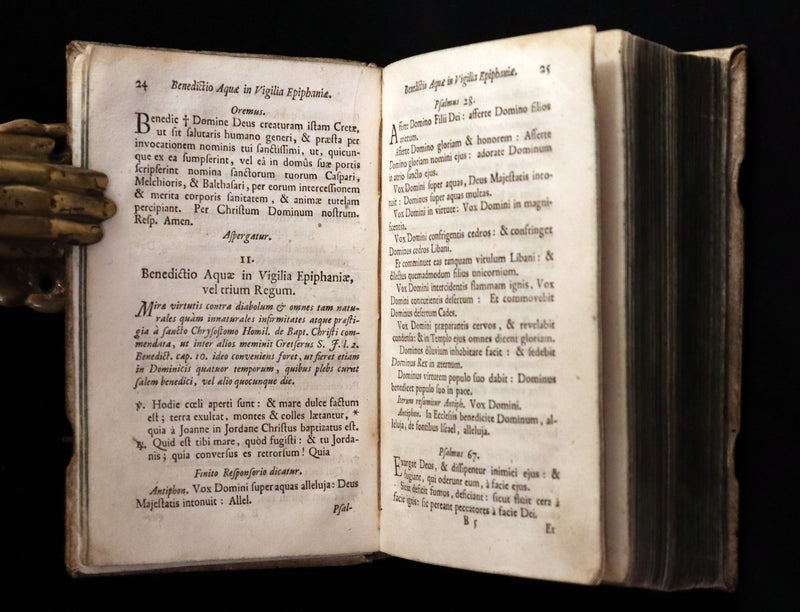 24 Benedictio Aquæ in Vigilia Epiphaniæ.
Oremus.
Benedic † Domine Deus creaturam iſtam Cretæ,
ut ſit ſalutaris humano generi, & præſta per
invocationem nominis tui ſanctiſſimi, ut, quicun-
que ex ea ſumpſerint, vel eâ in domûs ſuæ portis
ſcripſerint nomina ſanctorum tuorum Caſpari,
Melchioris, & Balthaſari, per eorum interceſſionem
& merita corporis ſanitatem, & animæ tutelam
percipiant. Per Chriſtum Dominum noſtrum.
Reſp. Amen.
Aſpergatur.
II.
Benedictio Aquæ in Vigilia Epiphaniæ,
vel trium Regum.
Miræ virtutis contra diabolum & omnes tam natu-
rales quàm innaturales infirmitates atque præſti-
gia à ſancto Chryſoſtomo Homil. de Bapt. Chriſti com-
mendata, ut inter alios meminit Gretſerus S. J. l. 2.
Benedict. cap. 10. ideo conveniens foret, ut fieret etiam
in Dominicis quatuor temporum, quibus plebs curat
ſalem benedici, vel alio quocunque die.
℣. Hodie cœli aperti ſunt: & mare dulce factum
eſt; terra exultat, montes & colles lætantur, *
quia à Joanne in Jordane Chriſtus baptizatus eſt.
℟. Quid eſt tibi mare, quòd fugiſti: & tu Jorda-
nis; quia converſus es retrorſum! Quia
Finito Reſponſorio dicatur.
Antiphon. Vox Domini ſuper aquas alleluja: Deus
Majeſtatis intonuit: Allel.
Pſal-
Benedictio Aquæ in Vigilia Epiphaniæ. 25
Pſalmus 28.
Aferte Domino Filii Dei: afferte Domino filios
arietum.
Afferte Domino gloriam & honorem: Afferte
Domino gloriam nomini ejus: adorate Dominum
in atrio ſancto ejus.
Vox Domini ſuper aquas, Deus Majeſtatis into-
nuit: Dominus ſuper aquas multas.
Vox Domini in virtute: Vox Domini in magni-
ficentia.
Vox Domini confringentis cedros: & confringet
Dominus cedros Libani.
Et comminuet eas tanquam vitulum Libani: &
dilectus quemadmodum filius unicornium.
Vox Domini intercidentis flammam ignis, Vox
Domini concutientis deſertum: Et commovebit
Dominus deſertum Cades.
Vox Domini præparantis cervos, & revelabit
condenſa: & in Templo ejus omnes dicent gloriam.
Dominus diluvium inhabitare facit: & ſedebit
Dominus Rex in æternum.
Dominus virtutem populo ſuo dabit: Dominus
benedicet populo ſuo in pace.
Iterum reſumitur Antiph. Vox Domini.
Antiphon. In Eccleſiis benedicite Dominum, al-
leluja, de fontibus Iſrael, alleluja.
Pſalmus 67.
Exurgat Deus, & diſſipentur inimici ejus: &
fugiant, qui oderunt eum, à facie ejus.
Sicut deficit fumus, deficiant: ſicut fluit cera à
facie ignis: ſic pereant peccatores à facie Dei.
B 5
Et